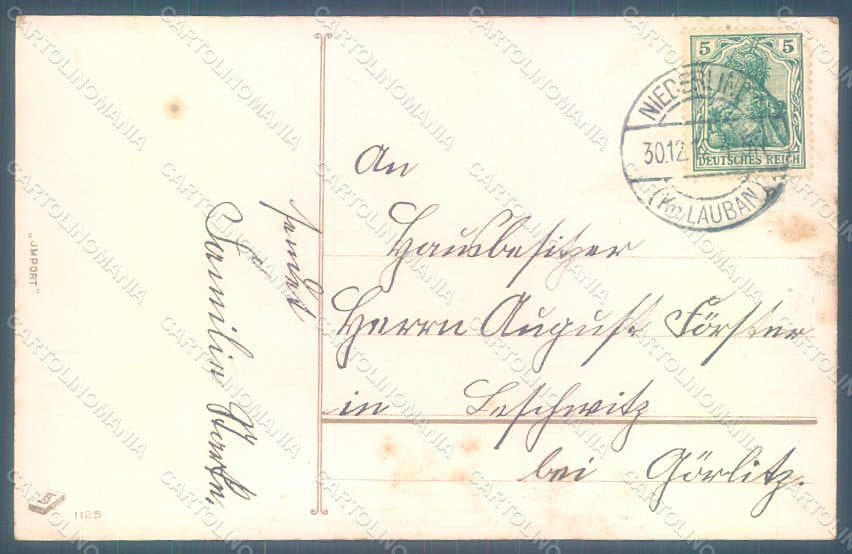 5 5
DEUTSCHES REICH
NIEDERLIN
30.12.
(Kr. LAUBAN)
An
Hausbesitzer
Herrn August Förster
in Leschwitz
bei Görlitz.
sendet
Familie
"IMPORT"
1125
CARTOLINOMANIA